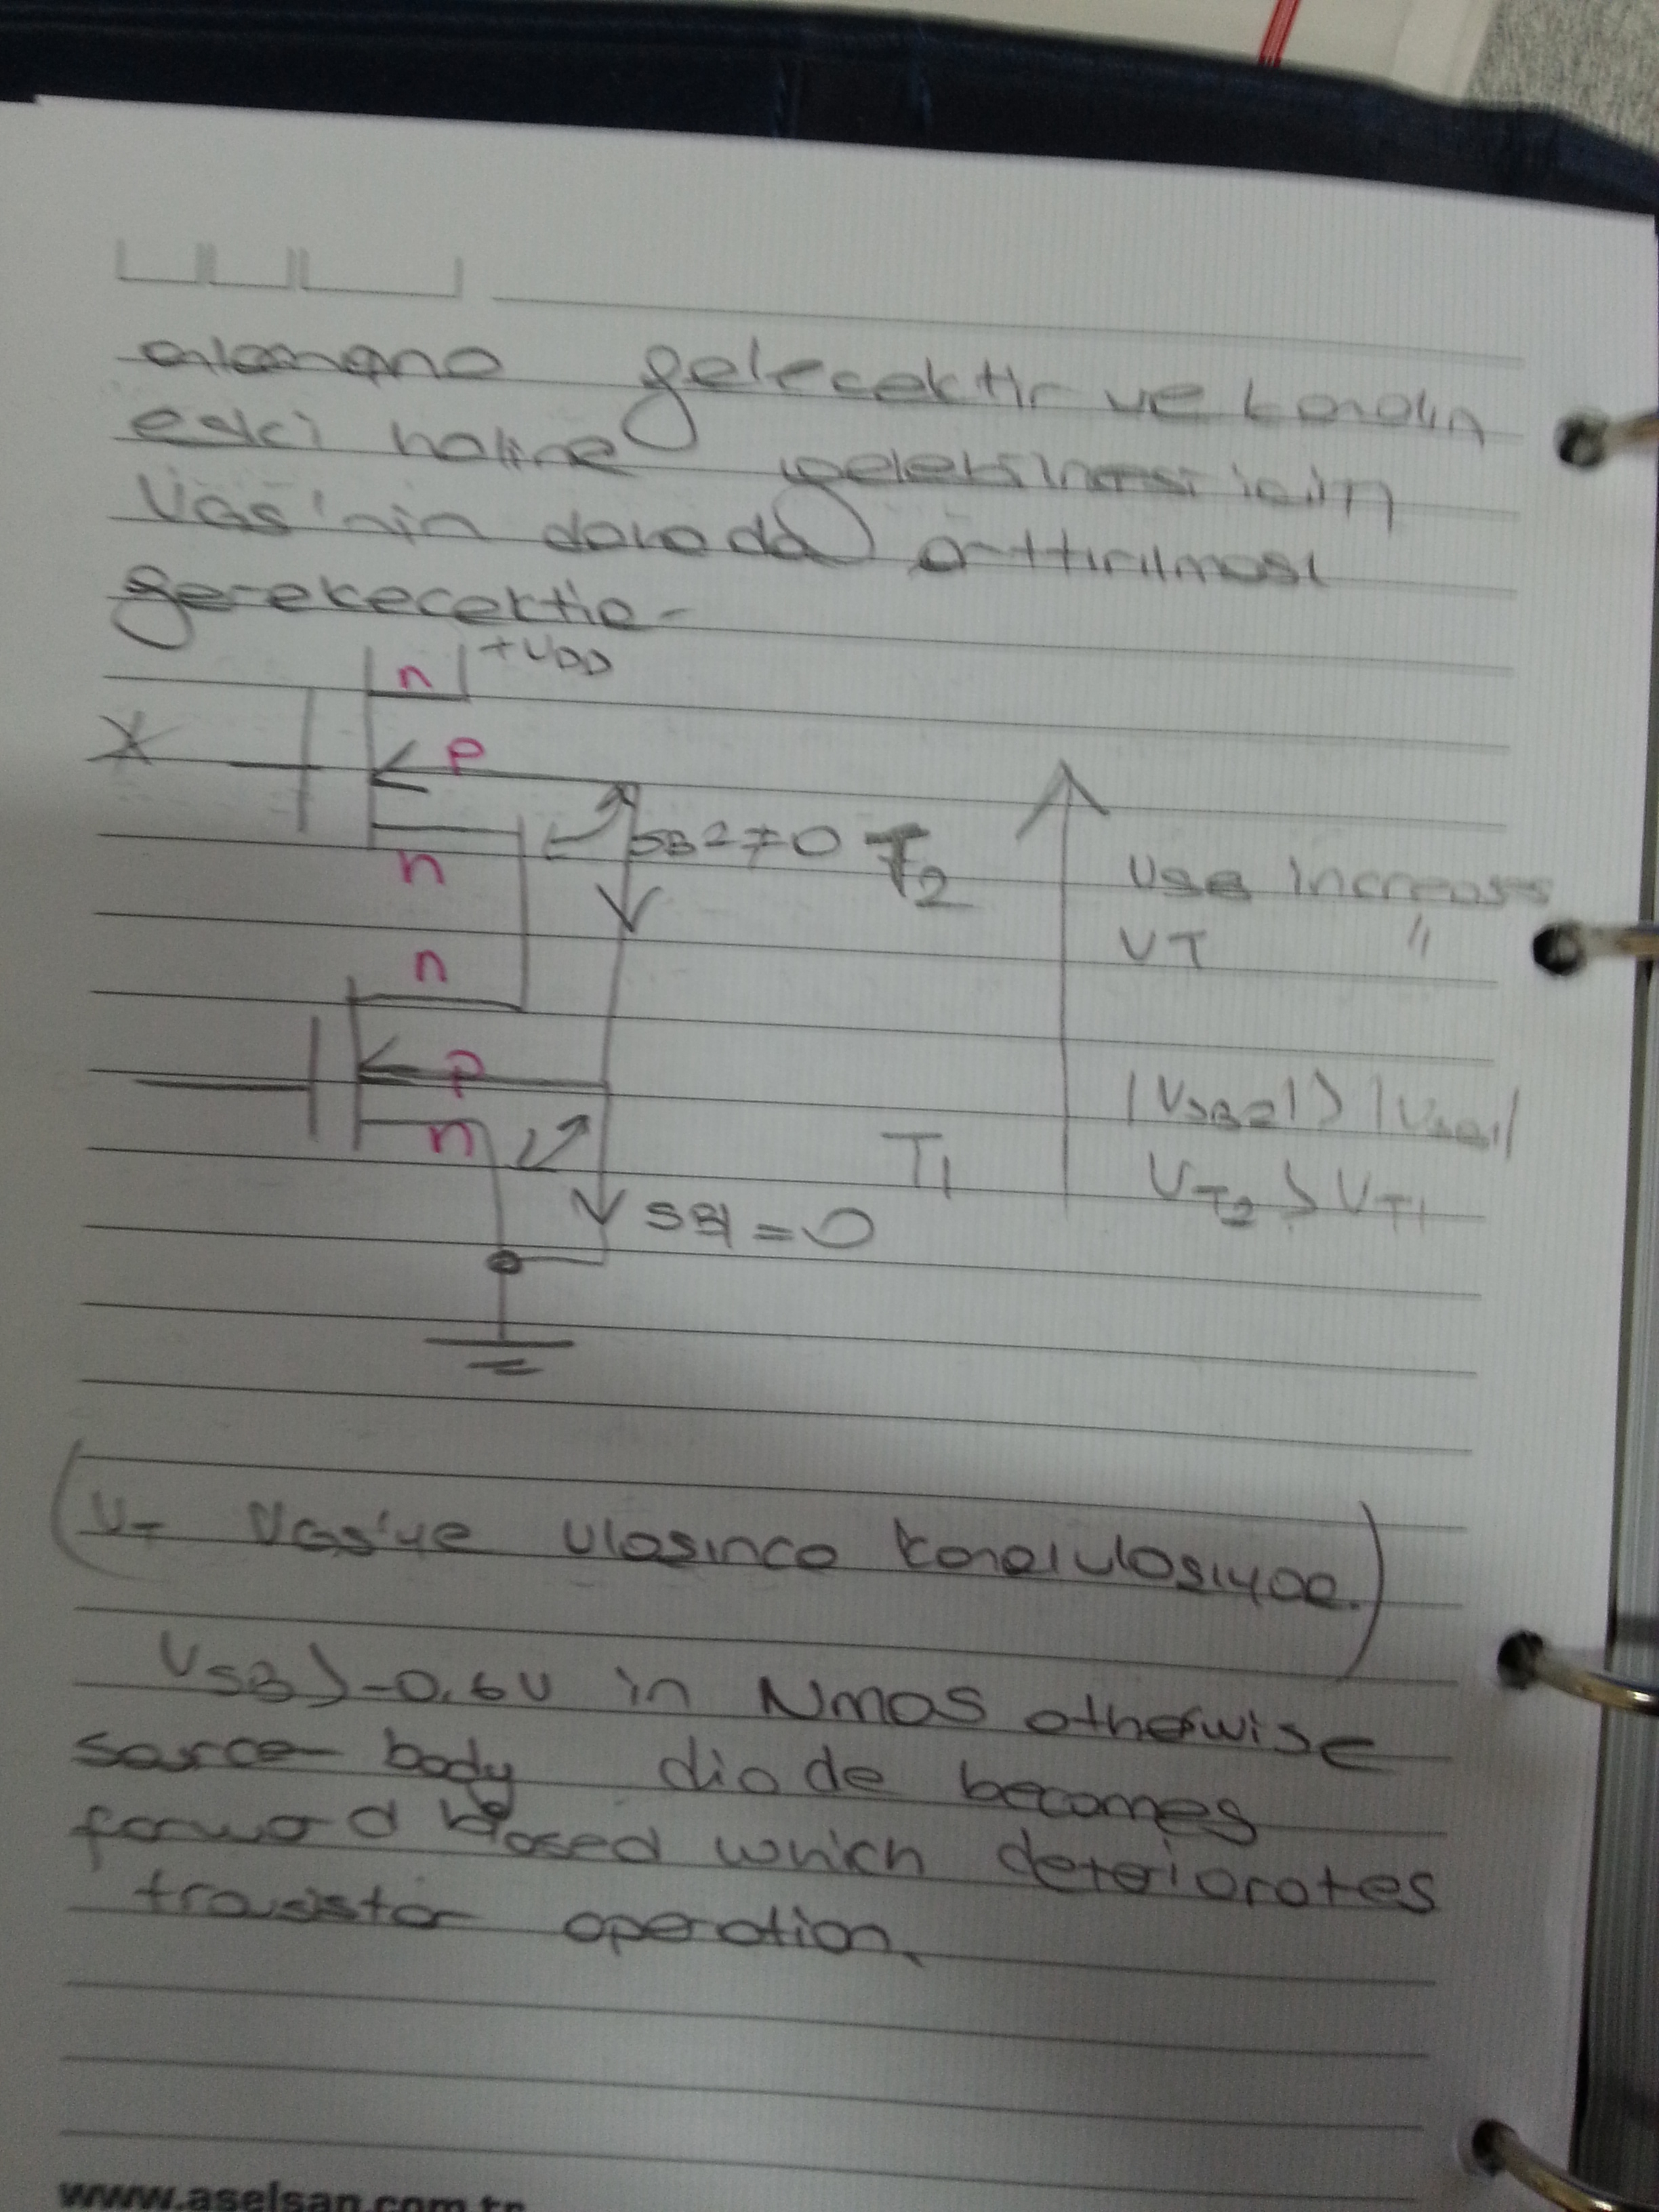 gelecektir ve kanalın
eski haline getirilmesi için
VGS'nin daha da arttırılması
gerekecektir.
n +VDD
X
P
n
SB2≠0 T2
VSB increases
VT "
n
P
n
|VSB2| > |VSB1|
T1
VT2 > VT1
SB1 = 0
(VT VGS'ye ulaşınca kanal uloşıyor.)
VSB > -0.6V in NMOS otherwise
source body diode becomes
forward biased which deteriorates
trasistor operation.
www.aselsan.com.tr